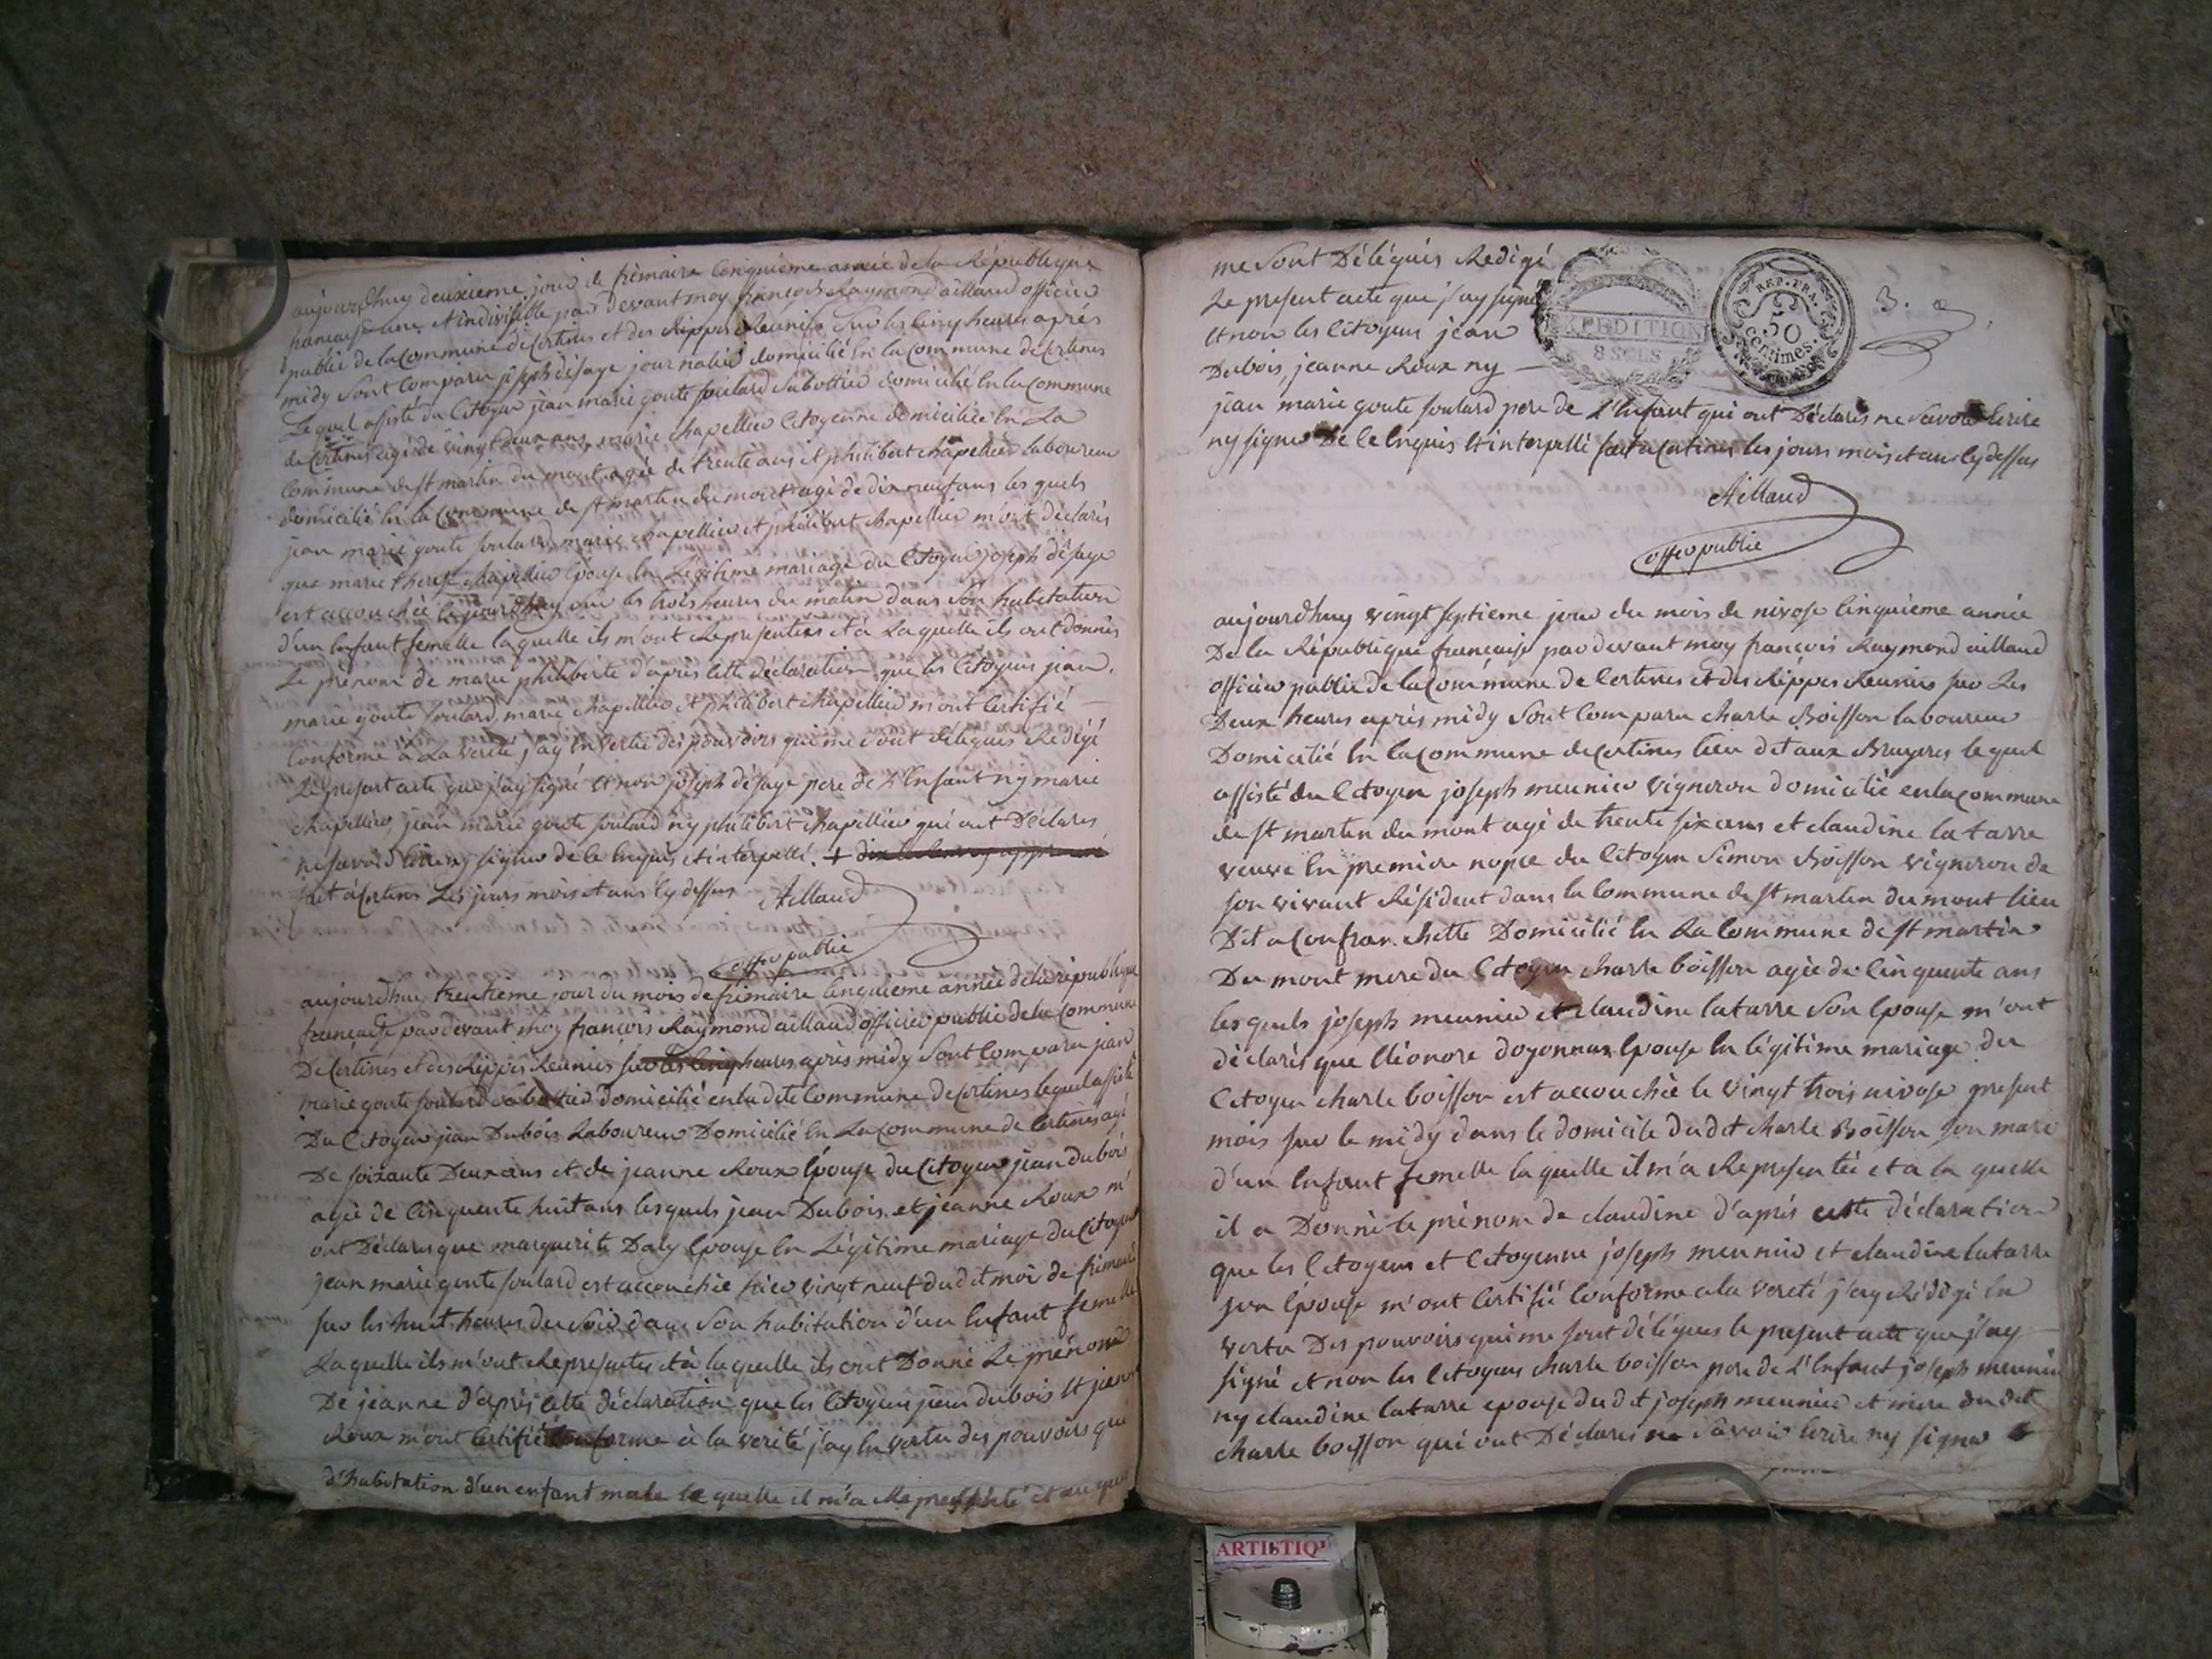 aujourdhuy deuxieme jour de frimaire cinquieme année de la République
francaise une et indivisible par devant moy francois Raymond aillaud officier
public de la Commune de Certines et des Rippes Reunies sur les cinq heures apres
midy sont comparu joseph désaye journalier domicilié en la Commune de Certines
Lequel assisté du Citoyen jean marie goute soulard sabottier domicilié en la Commune
de Certines agé de vingt deux ans, marie chapellier citoyenne domiciliée en La
Commune de st martin du mont agée de trente ans et philibert chapellier laboureur
domicilié en la Commune de st martin du mont agé de dix neuf ans les quels
jean marie goute soulard, marie chapellier et philibert chapellier m'ont déclarés
que marie therese chapellier épouse en Légitime mariage du Citoyen joseph désaye
est accouchée ce jourdhuy sur les trois heures du matin dans son habitation
d'un enfant femelle la quelle ils m'ont Representers et à La quelle ils ont donnés
Le prénom de marie philiberte d'après cette déclaration que les Citoyens jean
marie goute soulard, marie chapellier et philibert chapellier m'ont certifié
conforme à La verité j'ay en vertu des pouvoirs qui me sont délégués Rédigé
Le present acte que j'ay signé et non joseph désaye pere de L'enfant ny marie
chapellier, jean marie goute soulard ny philibert chapellier qui ont Déclarés
ne savoir écrire ny signer de ce enquis et interpellé. +
fait a Certines Les jours mois et ans cy dessus Aillaud
offer public
aujourdhuy trentieme jour du mois de frimaire cinquieme année de la république
francaise par devant moy francois Raymond aillaud officier public de la Commune
De Certines et des Rippes Reunies sur les cinq heures après midy sont comparu jean
marie goute soulard sabottier domicilié en la dite Commune de Certines lequel assisté
Du Citoyen jean Dubois Laboureur Domicilié en La Commune de Certines agé
De soixante Deux ans et de jeanne Roux épouse du Citoyen jean dubois
agée de cinquante huit ans lesquels jean Dubois et jeanne Roux m'
ont Déclarés que marguerite Daly épouse en Légitime mariage du Citoyen
jean marie goute soulard est accouchée hier vingt neuf dudit mois de frimaire
sur les huit heures du soir dans son habitation d'un enfant femelle
La quelle ils m'ont Representer et à la quelle ils ont Donné Le prénom
De jeanne d'après cette déclaration que les Citoyens jean dubois et jeanne
Roux m'ont certifié conforme à la verité j'ay en vertu des pouvoirs qui
d'habitation d'un enfant male le quelle il m'a Représenté et au quel
me sont Délégués Redigé
Le present acte que j'ay signé
et non les Citoyens jean
Dubois, jeanne Roux ny
EXPEDITION
8 SOLS
REP. FRA.
50
Centimes.
3.
jean marie goute soulard pere de L'enfant qui ont Déclarés ne savoir écrire
ny signer De ce enquis et interpellé fait a Certines les jours mois et ans cy dessus
Aillaud
offer public
aujourdhuy vingt septieme jour du mois de nivose cinquieme année
De la République francaise par devant moy francois Raymond aillaud
officier public de la Commune de Certines et des Rippes Reunies sur Les
Deux heures après midy sont comparu charle Boisson laboureur
Domicilié en la Commune de Certines lieu dit aux Bruyeres lequel
assisté du Citoyen joseph meunier vigneron domicilié en la commune
de st martin du mont agé de trente six ans et claudine latarre
veuve en premiere nopce du Citoyen Simon Boisson vigneron de
son vivant Résident dans la Commune de st martin du mont lieu
Dit a Confranchette Domicilié en La Commune de st martin
Du mont mere du Citoyen charle boisson agée de cinquante ans
les quels joseph meunier et claudine latarre son épouse m'ont
déclarés que Eléonore doyonnax épouse en légitime mariage du
Citoyen charle boisson est accouchée le vingt trois nivose present
mois sur le midy dans le domicile dudit charle Boisson son mari
d'un enfant femelle la quelle il m'a Representée et a la quelle
il a Donné le prénom de claudine d'après cette déclaration
que les Citoyens et Citoyenne joseph meunier et claudine latarre
son épouse m'ont certifié conforme a la verité j'ay Rédigé en
vertu Des pouvoirs qui me sont délégués le present acte que j'ay
signé et non les Citoyens charle boisson pere de L'enfant joseph meunier
ny claudine latarre epouse dudit joseph meunier et mere dudit
charle boisson qui ont Déclarés ne savoir écrire ny signer
ARTISTIQ